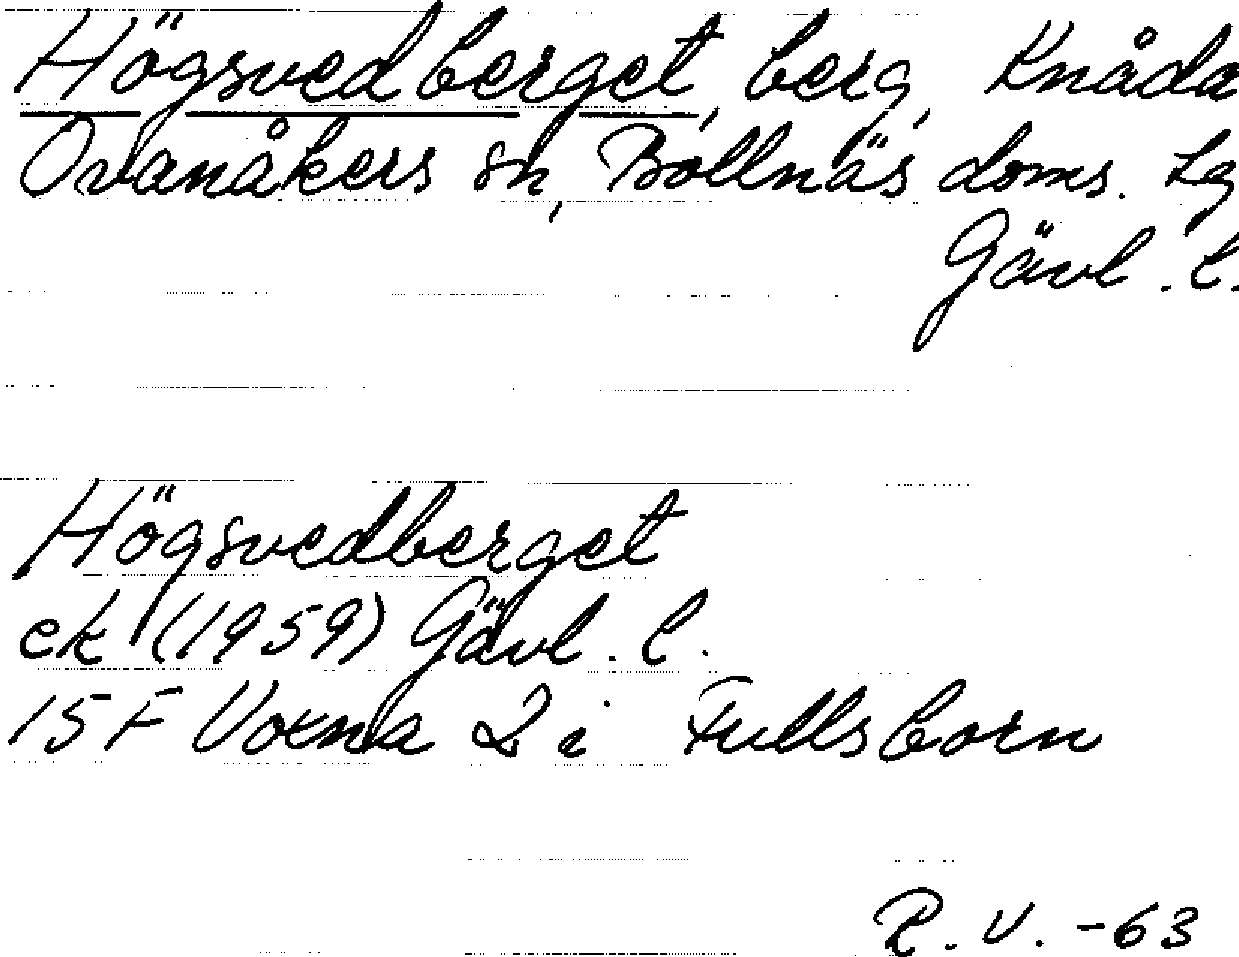 Högsvedberget, berg, Knåda
Ovanåkers sn, Bollnäs doms. Lg
Gävl. l.
Högsvedberget
ek (1959) Gävl. l.
15 F Voxna 2 i Fullsborn
R. V. -63